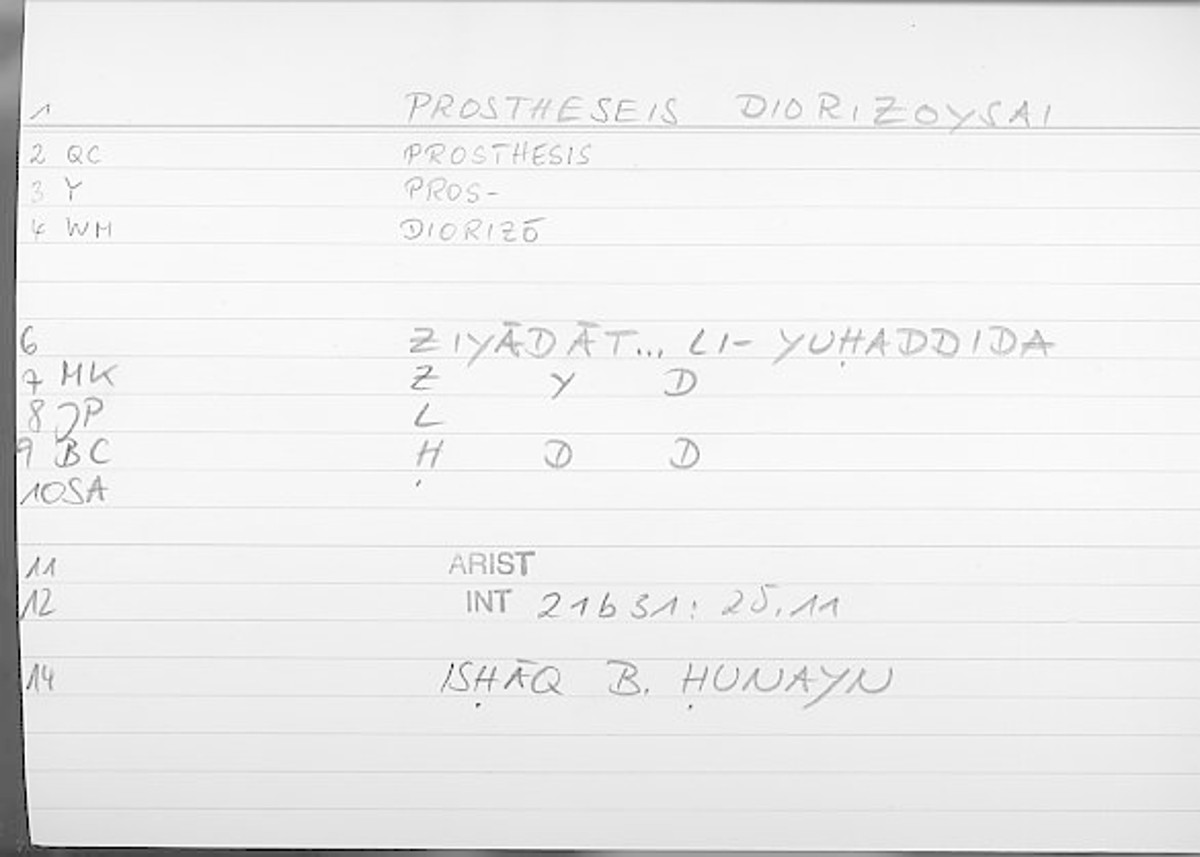 1 PROSTHESEIS DIORIZOYSAI
2 QC PROSTHESIS
3 Y PROS-
4 WM DIORIZŌ
6 ZIYĀDĀT... LI- YUḤADDIDA
7 MK Z Y D
8 JP L
9 BC Ḥ D D
10 SA
11 ARIST
12 INT 21b31: 25.11
14 ISḤĀQ B. ḤUNAYN